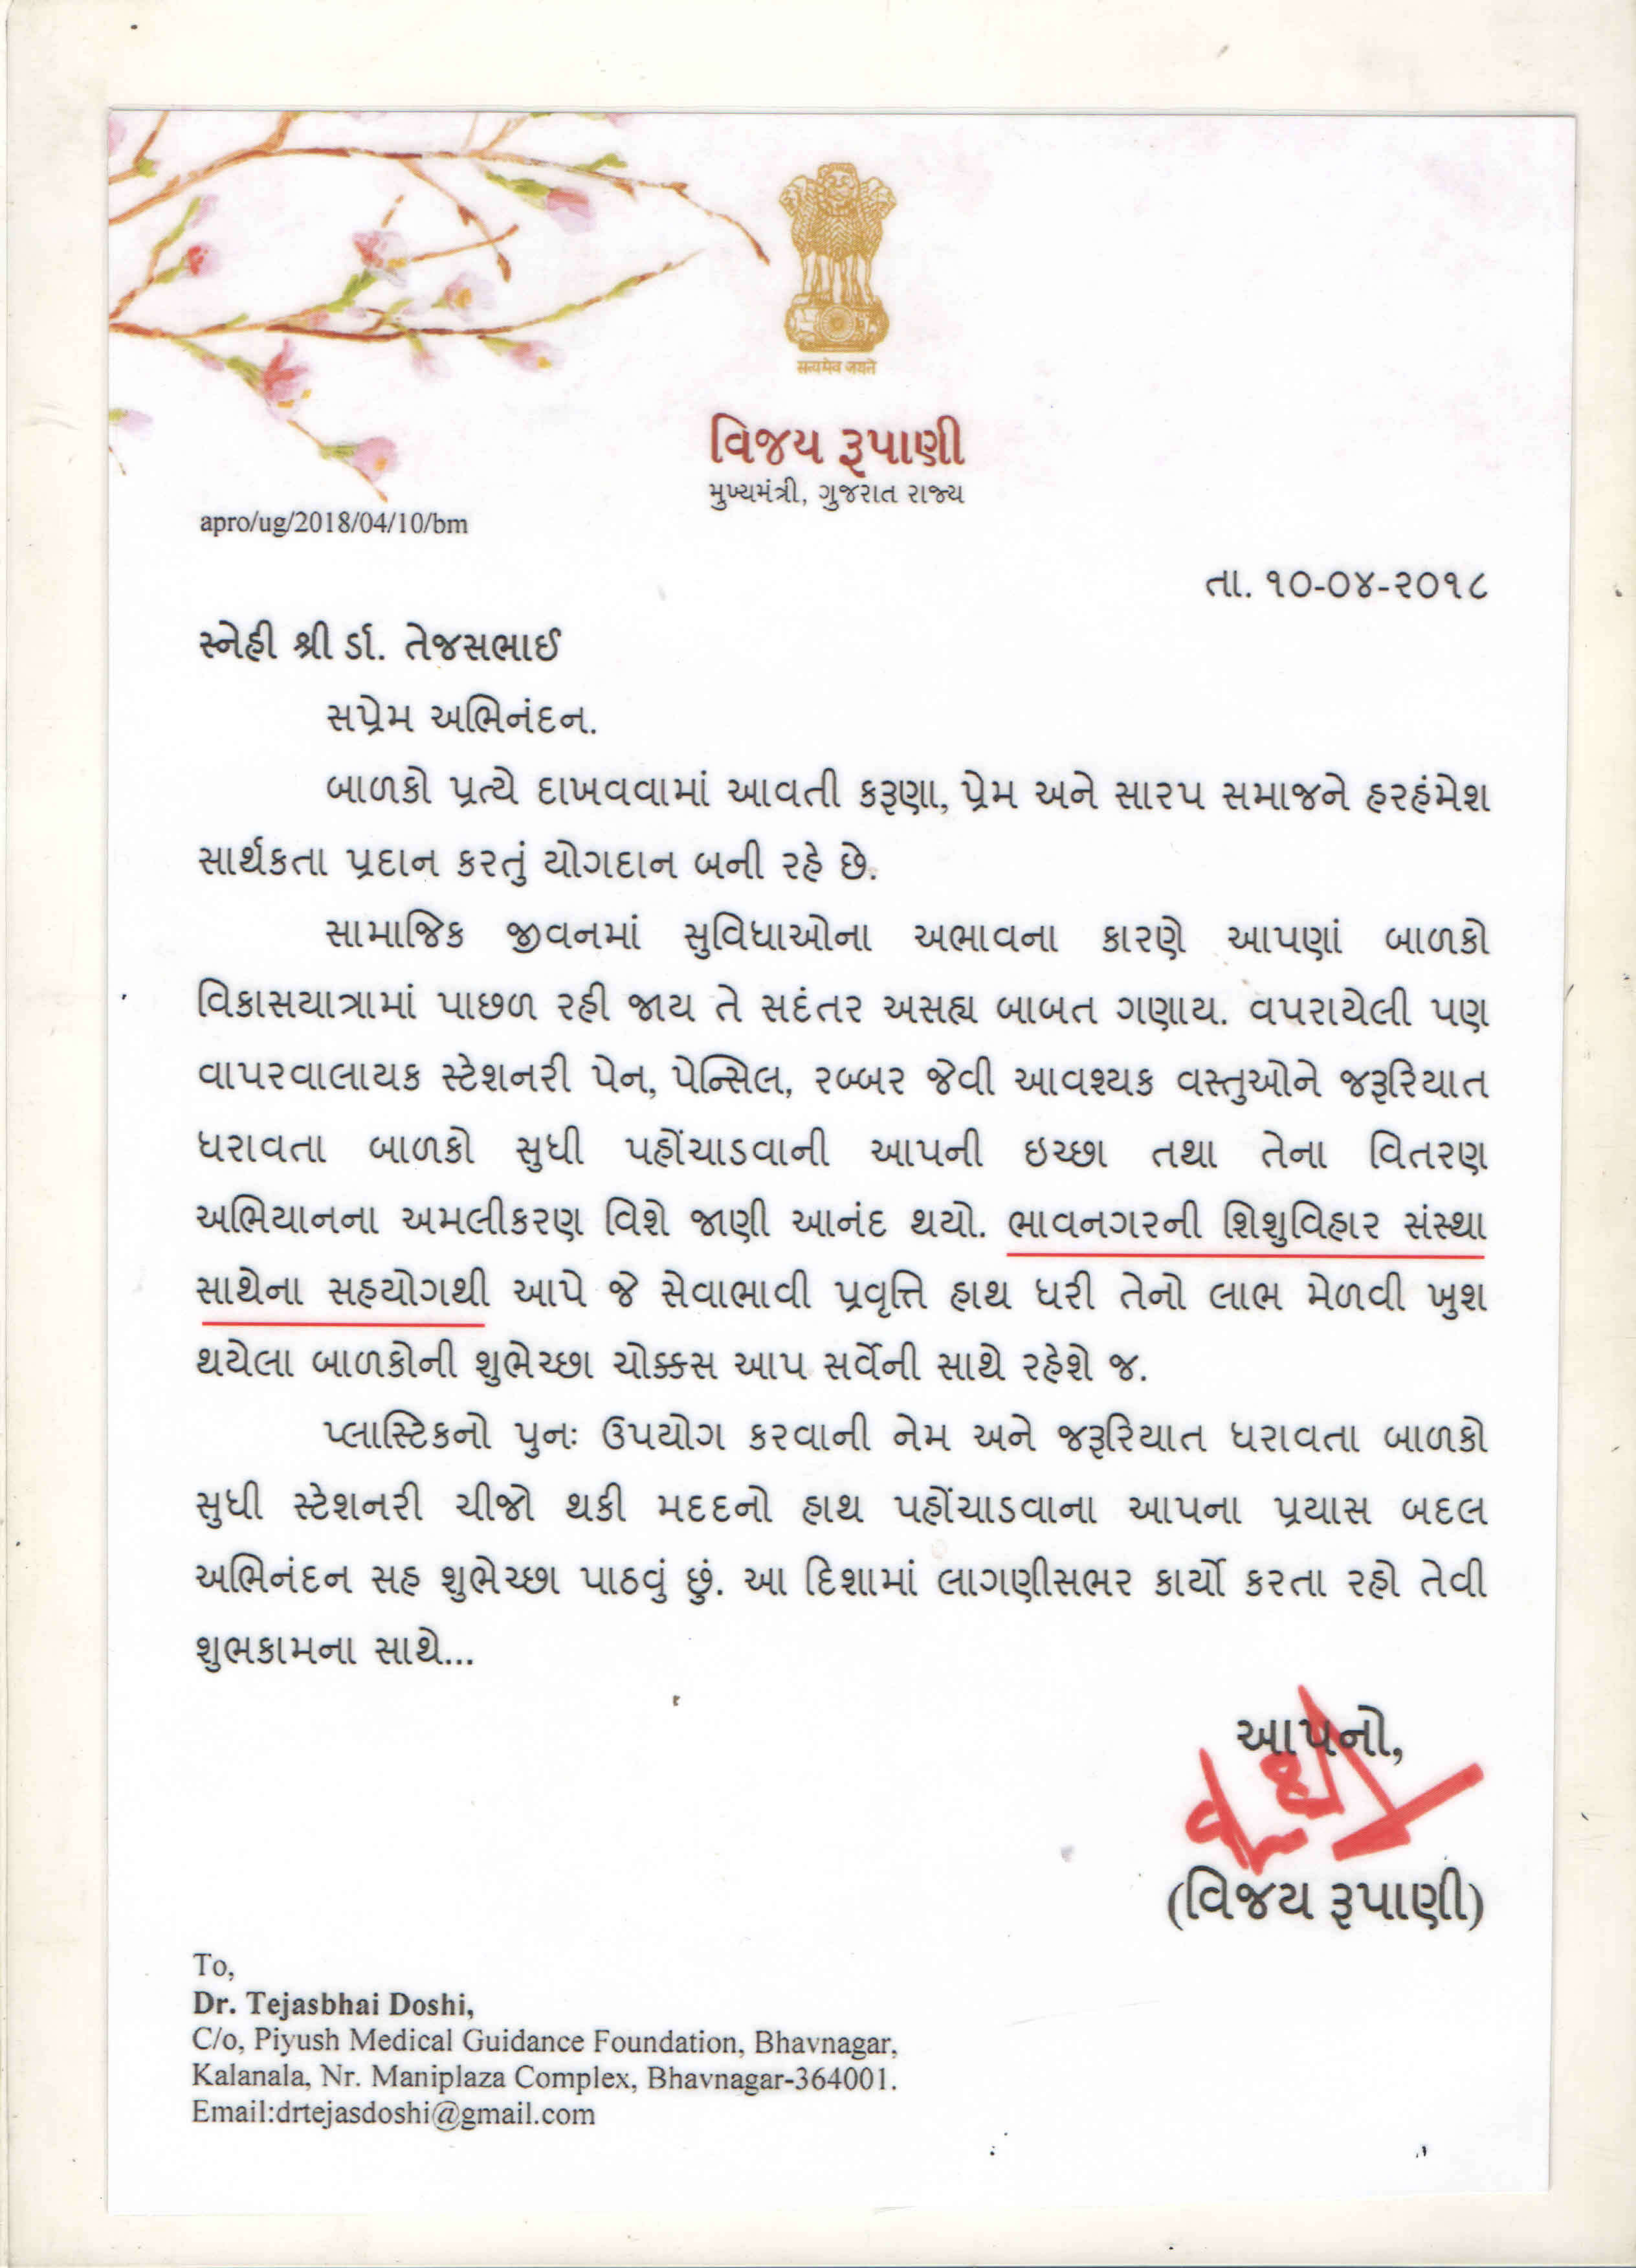 सत्यमेव जयते
વિજય રૂપાણી
મુખ્યમંત્રી, ગુજરાત રાજ્ય
apro/ug/2018/04/10/bm
તા. ૧૦-૦૪-૨૦૧૮
સ્નેહી શ્રી ર્ડા. તેજસભાઈ
સપ્રેમ અભિનંદન.
બાળકો પ્રત્યે દાખવવામાં આવતી કરૂણા, પ્રેમ અને સારપ સમાજને હરહંમેશ
સાર્થકતા પ્રદાન કરતું યોગદાન બની રહે છે.
સામાજિક જીવનમાં સુવિધાઓના અભાવના કારણે આપણાં બાળકો
વિકાસયાત્રામાં પાછળ રહી જાય તે સદંતર અસહ્ય બાબત ગણાય. વપરાયેલી પણ
વાપરવાલાયક સ્ટેશનરી પેન, પેન્સિલ, રબ્બર જેવી આવશ્યક વસ્તુઓને જરૂરિયાત
ધરાવતા બાળકો સુધી પહોંચાડવાની આપની ઇચ્છા તથા તેના વિતરણ
અભિયાનના અમલીકરણ વિશે જાણી આનંદ થયો. ભાવનગરની શિશુવિહાર સંસ્થા
સાથેના સહયોગથી આપે જે સેવાભાવી પ્રવૃત્તિ હાથ ધરી તેનો લાભ મેળવી ખુશ
થયેલા બાળકોની શુભેચ્છા ચોક્કસ આપ સર્વેની સાથે રહેશે જ.
પ્લાસ્ટિકનો પુનઃ ઉપયોગ કરવાની નેમ અને જરૂરિયાત ધરાવતા બાળકો
સુધી સ્ટેશનરી ચીજો થકી મદદનો હાથ પહોંચાડવાના આપના પ્રયાસ બદલ
અભિનંદન સહ શુભેચ્છા પાઠવું છું. આ દિશામાં લાગણીસભર કાર્યો કરતા રહો તેવી
શુભકામના સાથે...
આપનો,
(વિજય રૂપાણી)
To,
Dr. Tejasbhai Doshi,
C/o, Piyush Medical Guidance Foundation, Bhavnagar,
Kalanala, Nr. Maniplaza Complex, Bhavnagar-364001.
Email:drtejasdoshi@gmail.com